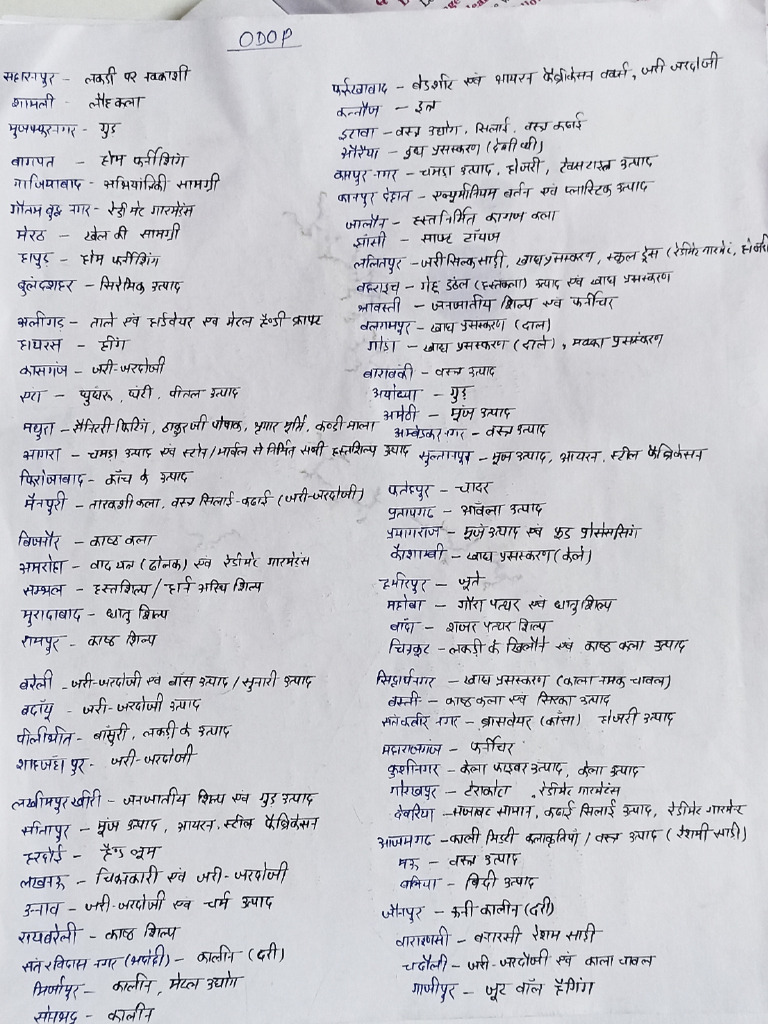 ODOP
सहारनपुर - लकड़ी पर नक्काशी
शामली - लौह कला
मुजफ्फरनगर - गुड़
बागपत - होम फर्नीशिंग
गाजियाबाद - अभियांत्रिकी सामग्री
गौतम बुद्ध नगर - रेडीमेट गारमेंटस
मेरठ - खेल की सामग्री
हापुड़ - होम फर्नीशिंग
बुलंदशहर - सिरेमिक उत्पाद
अलीगढ़ - ताले एवं हार्डवेयर एवं मेटल हैण्डी क्राफ्ट
हाथरस - हींग
कासगंज - जरी-जरदोजी
एटा - घुंघरू, घंटी, पीतल उत्पाद
मथुरा - सैनिटरी फिटिंग, ठाकुरजी पोषाक, श्रृंगार मूर्ति, कण्ठी माला
आगरा - चमडा उत्पाद एवं स्टोन/मार्बल से निर्मित सभी हस्तशिल्प उत्पाद
फिरोजाबाद - काँच के उत्पाद
मैनपुरी - तारकशी कला, वस्त्र सिलाई-कढाई (जरी-जरदोजी)
बिजनौर - काष्ठ कला
अमरोहा - वाद यन्त्र (ढोलक) एवं रेडीमेट गारमेंटस
सम्भल - हस्तशिल्प/हार्न अस्थि शिल्प
मुरादाबाद - धातु शिल्प
रामपुर - काष्ठ शिल्प
बरेली - जरी-जरदोजी एवं बाँस उत्पाद/सुनारी उत्पाद
बदाँयू - जरी-जरदोजी उत्पाद
पीलीभीत - बाँसुरी, लकडी के उत्पाद
शाहजहाँ पुर - जरी-जरदोजी
लखीमपुर खीरी - जनजातीय शिल्प एवं गुड उत्पाद
सीतापुर - मूंज उत्पाद, आयरन, स्टील फैब्रिकेसन
हरदोई - हैण्ड लूम
लखनऊ - चिकनकारी एवं जरी-जरदोजी
उन्नाव - जरी-जरदोजी एवं चर्म उत्पाद
रायबरेली - काष्ठ शिल्प
संत रविदास नगर (भदोही) - कालीन (दरी)
मिर्जापुर - कालीन, मेटल उद्योग
सोनभद्र - कालीन
फर्रुखाबाद - बेडशीट एवं आयरन फैब्रिकेसन वर्क्स, जरी जरदोजी
कन्नौज - इत्र
इटावा - वस्त्र उद्योग, सिलाई, वस्त्र कढाई
औरैया - दुग्ध प्रसस्करण (देशी घी)
कानपुर नगर - चमड़ा उत्पाद, होजरी, टेक्सटाइल उत्पाद
कानपुर देहात - एल्युमीनियम बर्तन एवं प्लास्टिक उत्पाद
जालौन - हस्तनिर्मित कागज कला
झाँसी - साफ्ट टॉयज
ललितपुर - जरी सिल्क साडी, खाद्य प्रसस्करण, स्कूल ड्रेस (रेडीमेट गारमेंट, होजरी
बहराइच - गेहू डंठल (हस्तकला) उत्पाद एवं खाद्य प्रसस्करण
श्रावस्ती - जनजातीय शिल्प एवं फर्नीचर
बलरामपुर - खाद्य प्रसस्करण (दाल)
गोंडा - खाद्य प्रसस्करण (दाले), मक्का प्रसस्करण
बाराबंकी - वस्त्र उत्पाद
अयोध्या - गुड़
अमेठी - मूंज उत्पाद
अम्बेडकर नगर - वस्त्र उत्पाद
सुल्तानपुर - मूंज उत्पाद, आयरन, स्टील फैब्रिकेसन
फतेहपुर - चादर
प्रतापगढ - आंवला उत्पाद
प्रयागराज - मूंज उत्पाद एवं फूड प्रोसेससिंग
कौशाम्बी - खाद्य प्रसस्करण (केले)
हमीरपुर - जूते
महोबा - गौरा पत्थर एवं धातु शिल्प
बाँदा - शजर पत्थर शिल्प
चित्रकूट - लकडी के खिलौने एवं काष्ठ कला उत्पाद
सिद्धार्थनगर - खाद्य प्रसस्करण (काला नमक चावल)
बस्ती - काष्ठ कला एवं सिरका उत्पाद
संत कबीर नगर - ब्रासवेयर (काँसा) होजरी उत्पाद
महाराजगंज - फर्नीचर
कुशीनगर - केला फाइबर उत्पाद, केला उत्पाद
गोरखपुर - टेराकोटा, रेडीमेट गारमेंटस
देवरिया - सजावट सामान, कढाई सिलाई उत्पाद, रेडीमेट गारमेन्ट
आजमगढ - काली मिट्टी कलाकृतियां/वस्त्र उत्पाद (रेशमी साडी)
मऊ - वस्त्र उत्पाद
बलिया - बिंदी उत्पाद
जौनपुर - ऊनी कालीन (दरी)
वाराणसी - बनारसी रेशम साडी
चंदौली - जरी-जरदोजी एवं काला चावल
गाजीपुर - जूट वॉल हैंगिंग